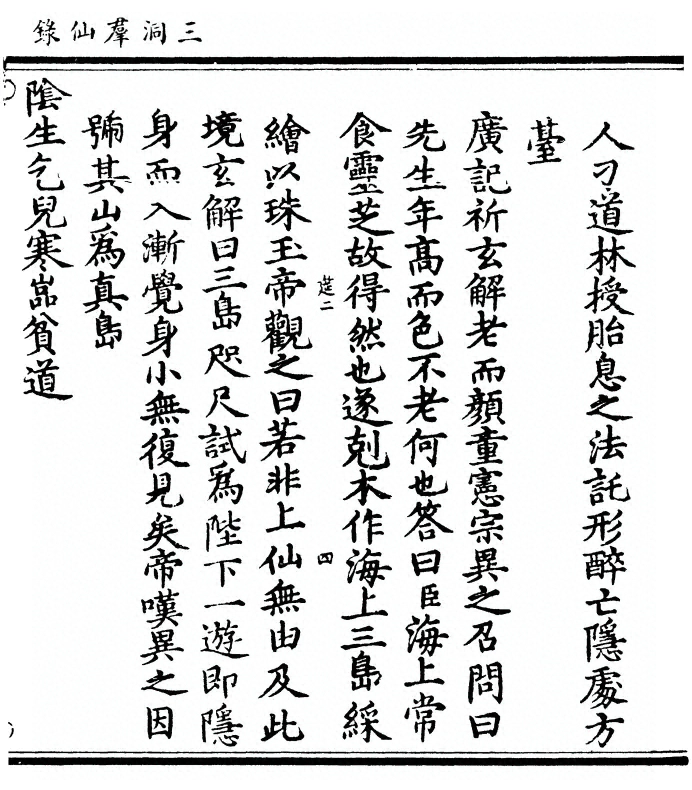 三洞羣仙錄
人刁道林授胎息之法託形醉亡隱處方
臺
廣記祈玄解老而顏童憲宗異之召問曰
先生年高而色不老何也答曰臣海上常
食靈芝故得然也遂剋木作海上三島綵
筵二
四
繪以珠玉帝觀之曰若非上仙無由及此
境玄解曰三島咫尺試爲陛下一遊即隱
身而入漸覺身小無復見矣帝嘆異之因
號其山爲真島
陰生乞兒寒嵓貧道